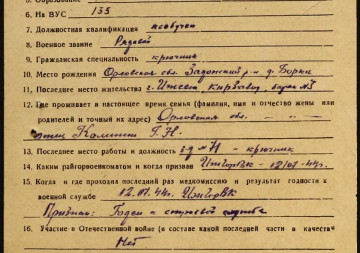 6. На ВУС 135
7. Должностная квалификация необучен
8. Военное звание Рядовой
9. Гражданская специальность крючник
10. Место рождения Орловская обл. Задонский р-н д. Борки
11. Последнее место жительства г. Ижевск барак №3
12. Где проживает в настоящее время семья (фамилия, имя и отчество жены или
родителей и точный их адрес) Орловская обл. — „ —
отец Калинин Г. Н.
13. Последнее место работы и должность крючник
14. Каким райгорвоенкоматом и когда призван ИжГорВК - 12/01-44г.
15. Когда и где проходил последний раз медкомиссию и результат годности к
военной службе 12.01.44г. ИжгорВК
Признан: Годен к строевой службе
16. Участие в Отечественной войне (в составе какой последней части в качестве
Нет